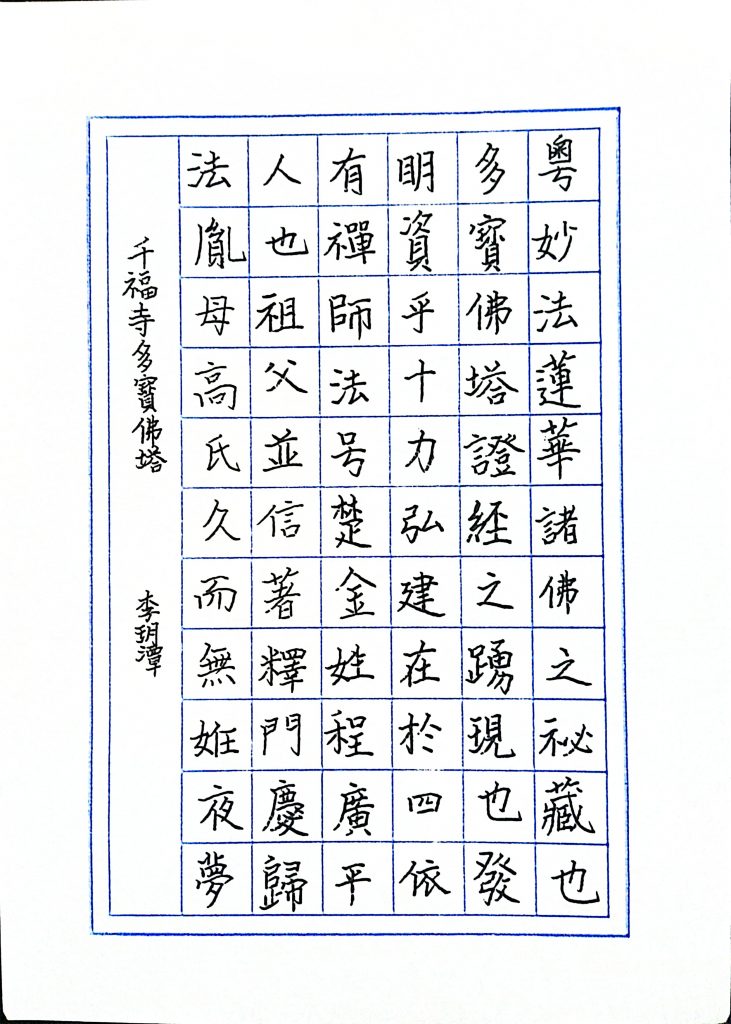 粵妙法蓮華諸佛之祕藏也
多寶佛塔證經之踴現也發
明資乎十力弘建在於四依
有禪師法号楚金姓程廣平
人也祖父並信著釋門慶歸
法胤母高氏久而無姙夜夢
千福寺多寶佛塔
李玥潭